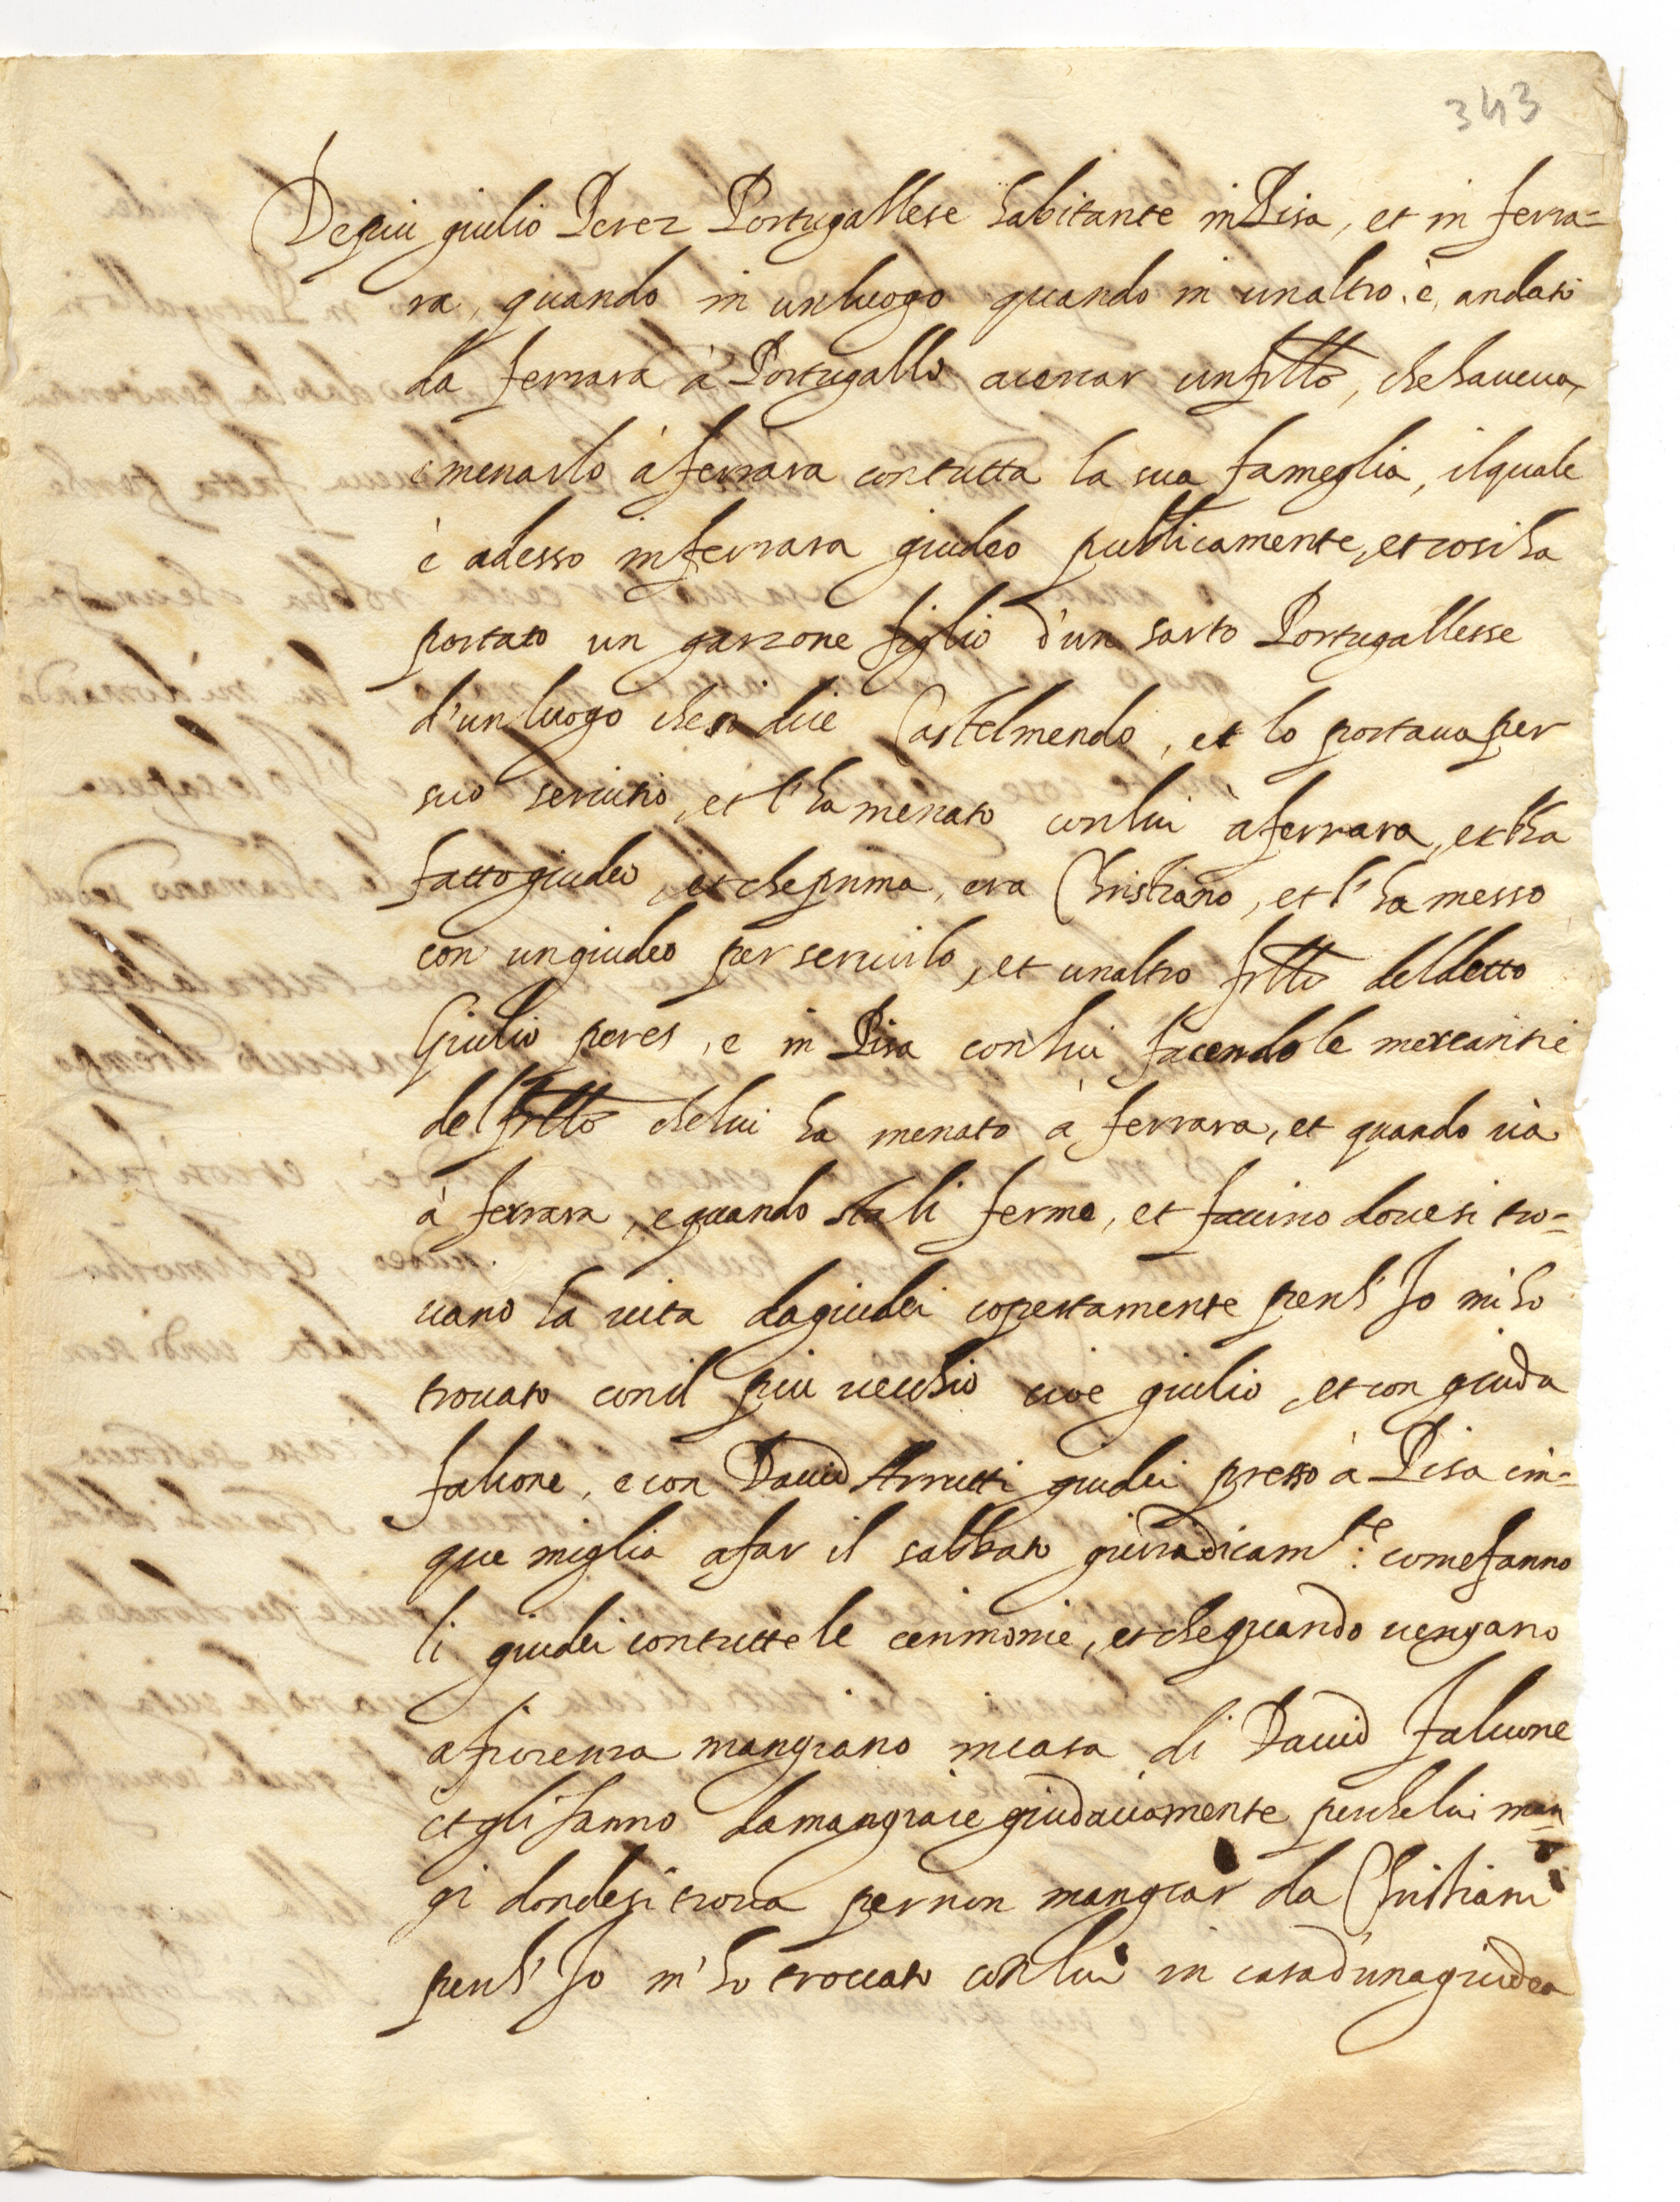 343
Depiu giulio Perez Portugallese habitante in Pisa, et in ferra=
ra, quando in un luogo quando in un altro. è, andato
da ferrara à Portugallo a cercar un fillo, che haueua,
e menarlo à ferrara con tutta la sua fameglia, il quale
è adesso in ferrara giudeo publicamente, et cosi ha
portato un garzone figlio d'un sarto Portugallesse
d'un luogo che si dice Castelmendo, et lo portaua per
suo seruitio, et l'ha menato con lui à ferrara, et l'ha
fatto giudeo, et che prima, era Christiano, et l'ha messo
con un giudeo per seruirlo, et un altro fillo del detto
Giulio peres, e in Pisa con lui facendo le mercantie
del fillo che lui ha menato à ferrara, et quando uà
à ferrara, e quando sta li fermo, et fanno doue si tro=
uano la uita da giudei copertamente perch' Jo mi ho
trouato con il piu uecchio cioe giulio, et con giuda
falcone, e con Dauid Arrutti giudei presso à Pisa cin=
que miglia a far il sabbato giuradicam.te come fanno
li giudei con tutte le cerimonie, et che quando uengano
a fiorenza mangiano in casa di Dauid Falcone
et gli fanno da mangiare giudaicamente perche lui man
gi donde si troua per non mangiar da Christiani
perch' Jo m'ho trouato con lui in casa d'una giudea